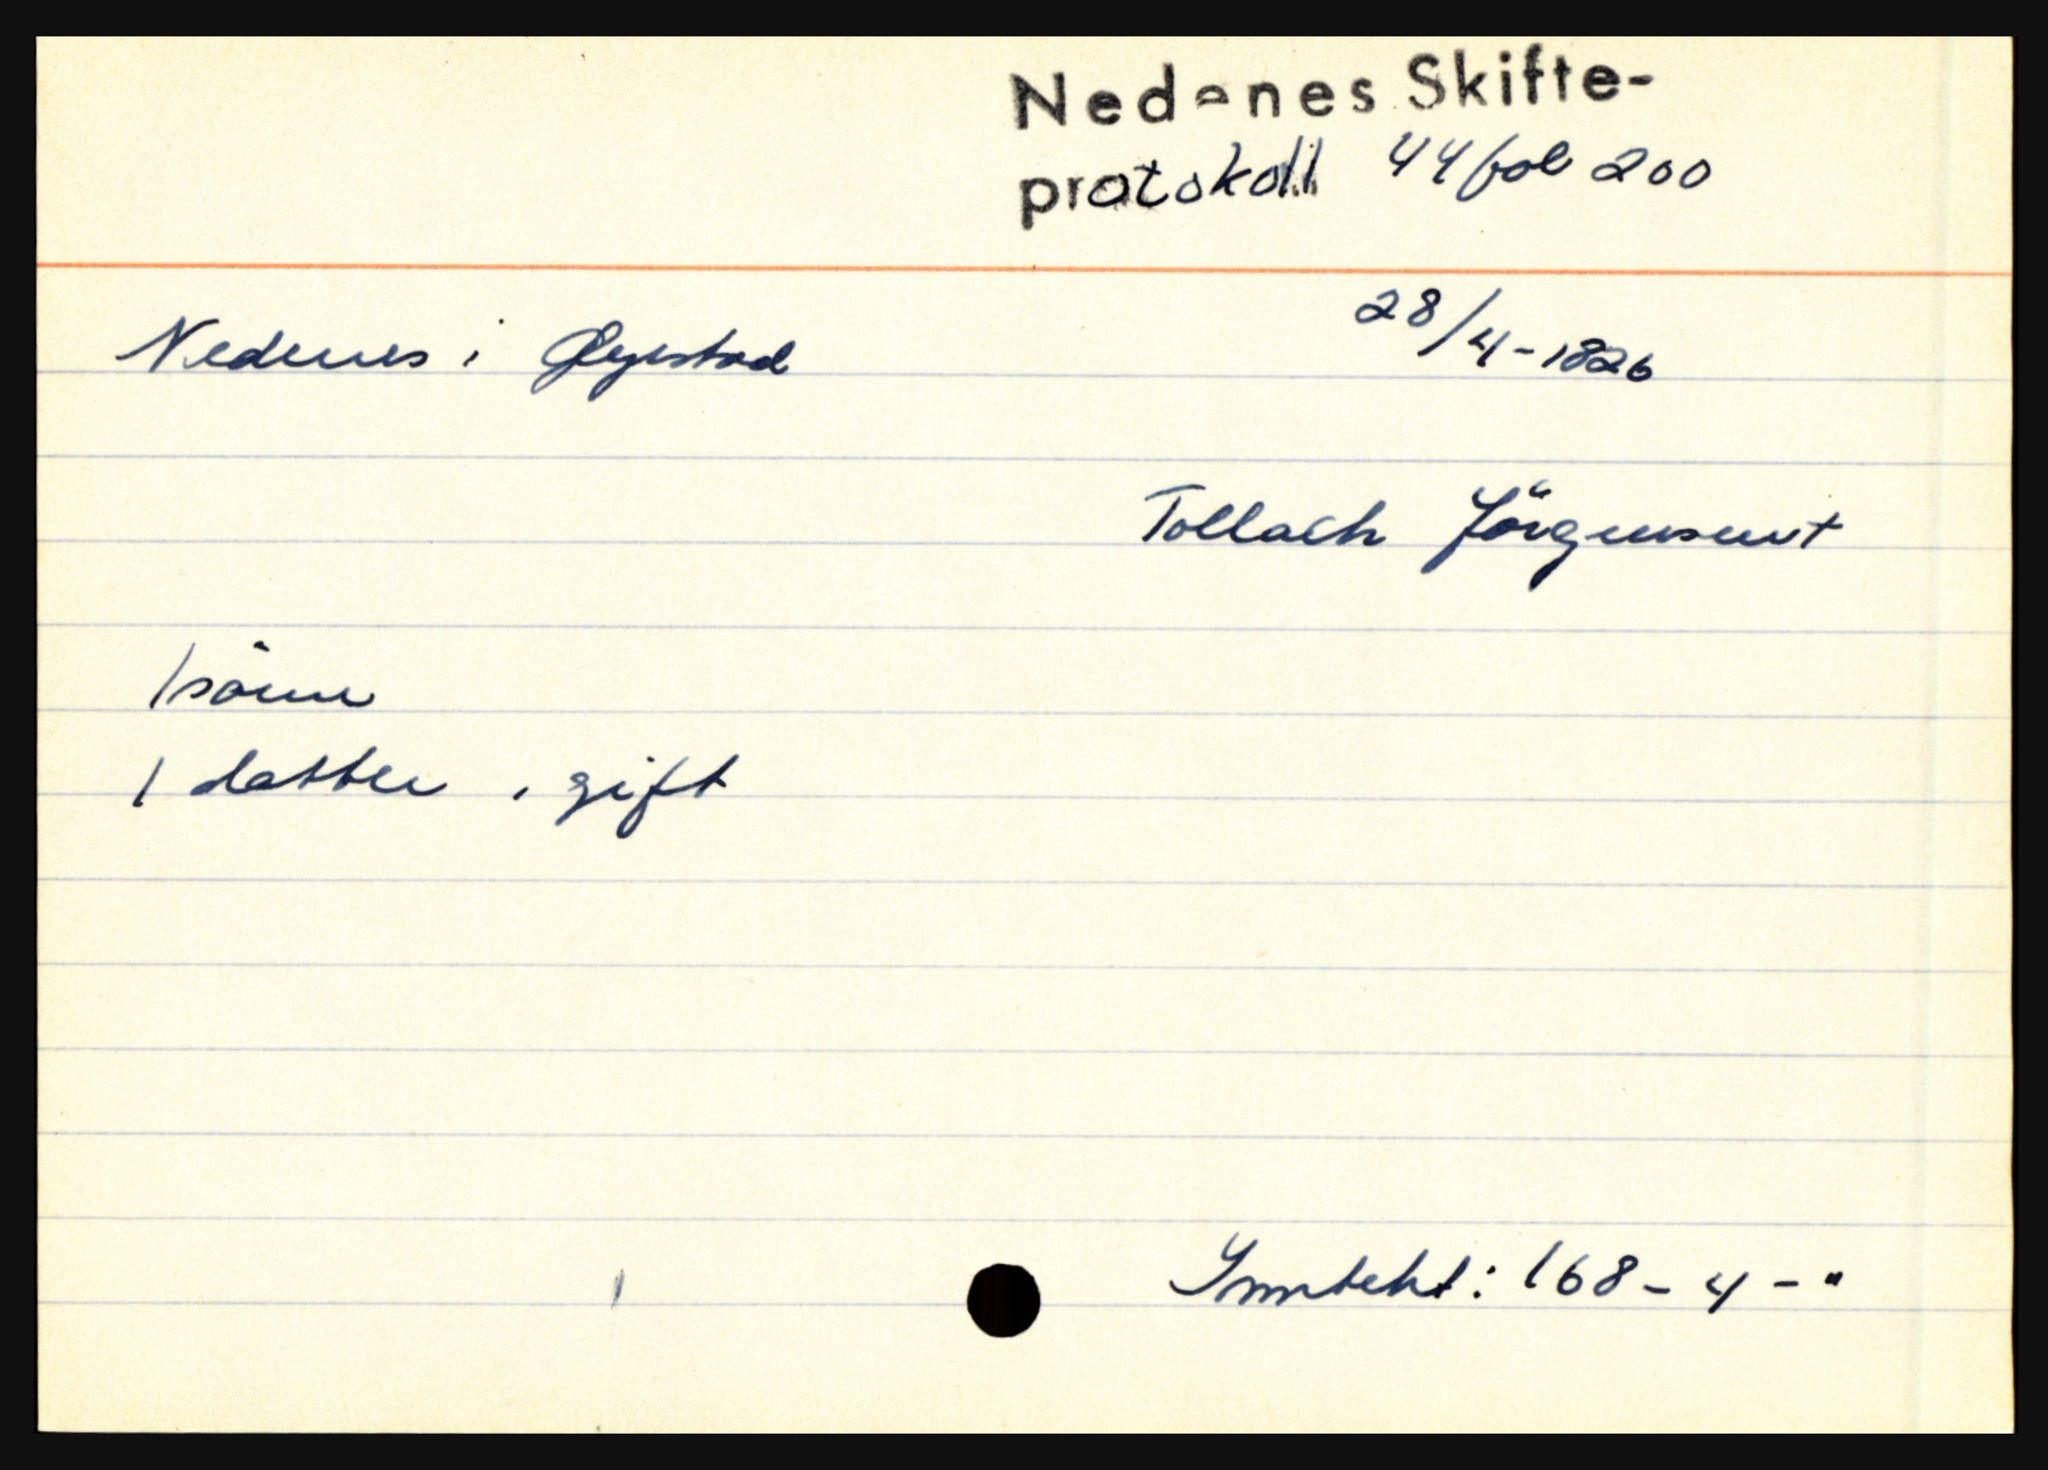 Nedenes Skifte-
protokoll 44 fol 200
Nedenes i Øyestad
28/4-1826
Tollach Jörgensen +
1 sönn
1 datter, gift
Inntekt: 168 - 4 - "